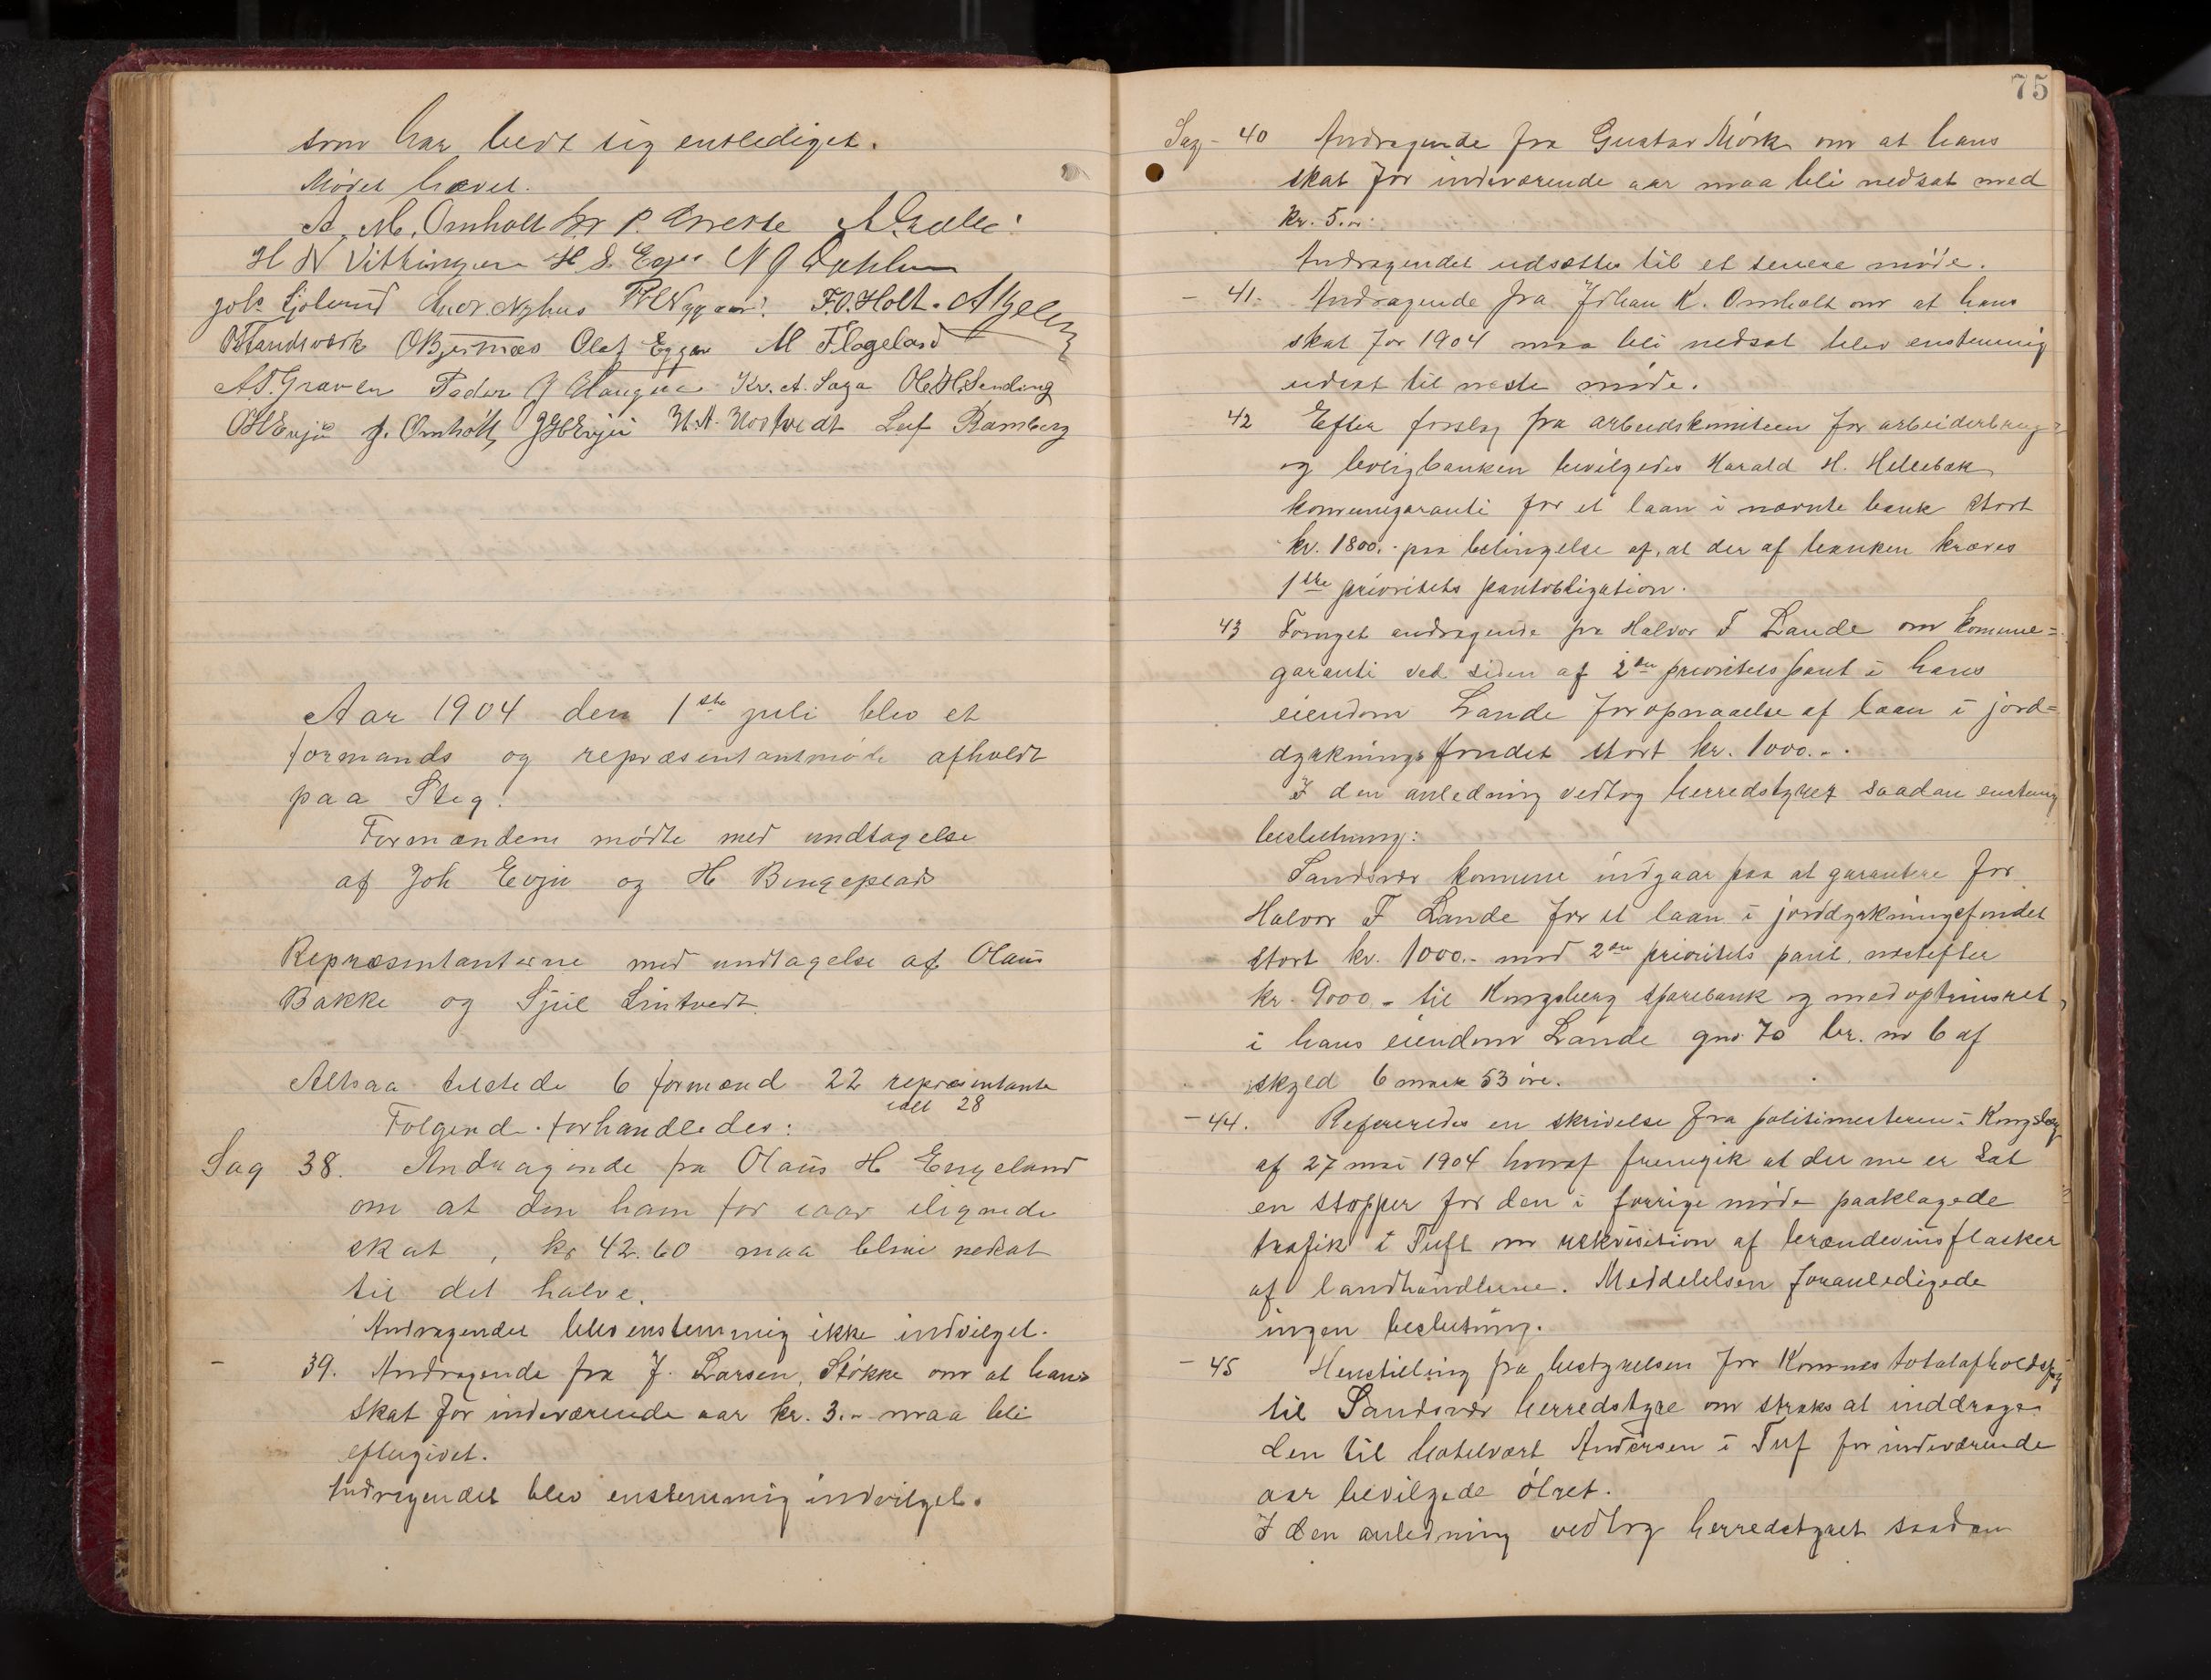 som har bedt sig entlediget.
Mødet hævet.
A. M. Omholt P.
H N Vittingen H S. Eger N J Dahlum
Joh. Nyhus F.O. Holt.
Olaf Eggar M Flageland
A.T. Graven Peder J Kr. A. Saga Ole H. Sending
OHEvju J. Omholt, JHEvju H.A. Hostvedt Leif Ramberg
Aar 1904 den 1ste juli blev et
formands og repræsentantmøde afholdt
paa Steg.
Formændene mødte med undtagelse
af Joh Evju og H Bingeplads
Repræsentanterne med undtagelse af Olaus
Bakke og Sjul Lintvedt.
Altsaa tilstede 6 formænd 22 repræsentante
ialt 28
Følgende forhandledes:
Sag 38. Andragende fra Olaus H Engeland
om at den ham for iaar ilignede
skat, kr 42.60 maa blive nedsat
til det halve.
Andragendet blev enstemmig ikke indvilget.
- 39. Andragende fra J. Larsen, Støkke om at hans
skat for indeværende aar kr. 3.- maa bli
eftergivet.
Andragendet blev enstemmig indvilget.
75
Sag - 40 Andragende fra Gustav Mørk om at hans
skat for indeværende aar maa bli nedsat med
kr. 5.-
Andragendet udsættes til et senere møde.
- 41- Andragende fra Johan K. Omholt om at hans
skat for 1904 maa bli nedsat blev enstemmig
udsat til næste møde.
42 Efter forslag fra arbeidskomiteen for arbeiderbrug-
og boligbanken bevilgedes Harald H. Hellebæk
komunegaranti for et laan i nævnte bank stort
kr. 1800.- paa betingelse af, at der af banken kræves
1ste prioritets pantobligation.
43 Fornyet andragende fra Halvor T Lande om komune=
garanti ved siden af 2den prioritets pant i hans
eiendom Lande for opnaaelse af laan i jord=
dyrkningsfondet stort kr. 1000.-.
I den anledning vedtog herredstyret saadan enstemmig
beslutning:
Sandsvær komune indgaar paa at garantere for
Halvor T Lande for et laan i jorddyrkningsfondet
stort kr. 1000.- mod 2den prioritets pant, næstefter
kr. 9000.- til Kongsberg sparebank og med optrinsret,
i hans eiendom Lande gno 70 br. no 6 af
skyld 6 mark 53 øre.
- 44. Refereredes en skrivelse fra politimesteren i Kongsberg
af 27 mai 1904 hvoraf fremgik at der nu er sat
en stopper for den i forrige møde paaklagede
trafik i Tuft om rekvisition af brændevinsflasker
af landhandlerne. Meddelelsen foranledigede
ingen beslutning.
- 45 Henstilling fra bestyrelsen for Komnes totalafholdsfg
til Sandsvær herredstyre om straks at inddrage
den til hotelvært Andersen i Tuf for indeværende
aar bevilgede ølret.
I den anledning vedtog herredstyret saadan